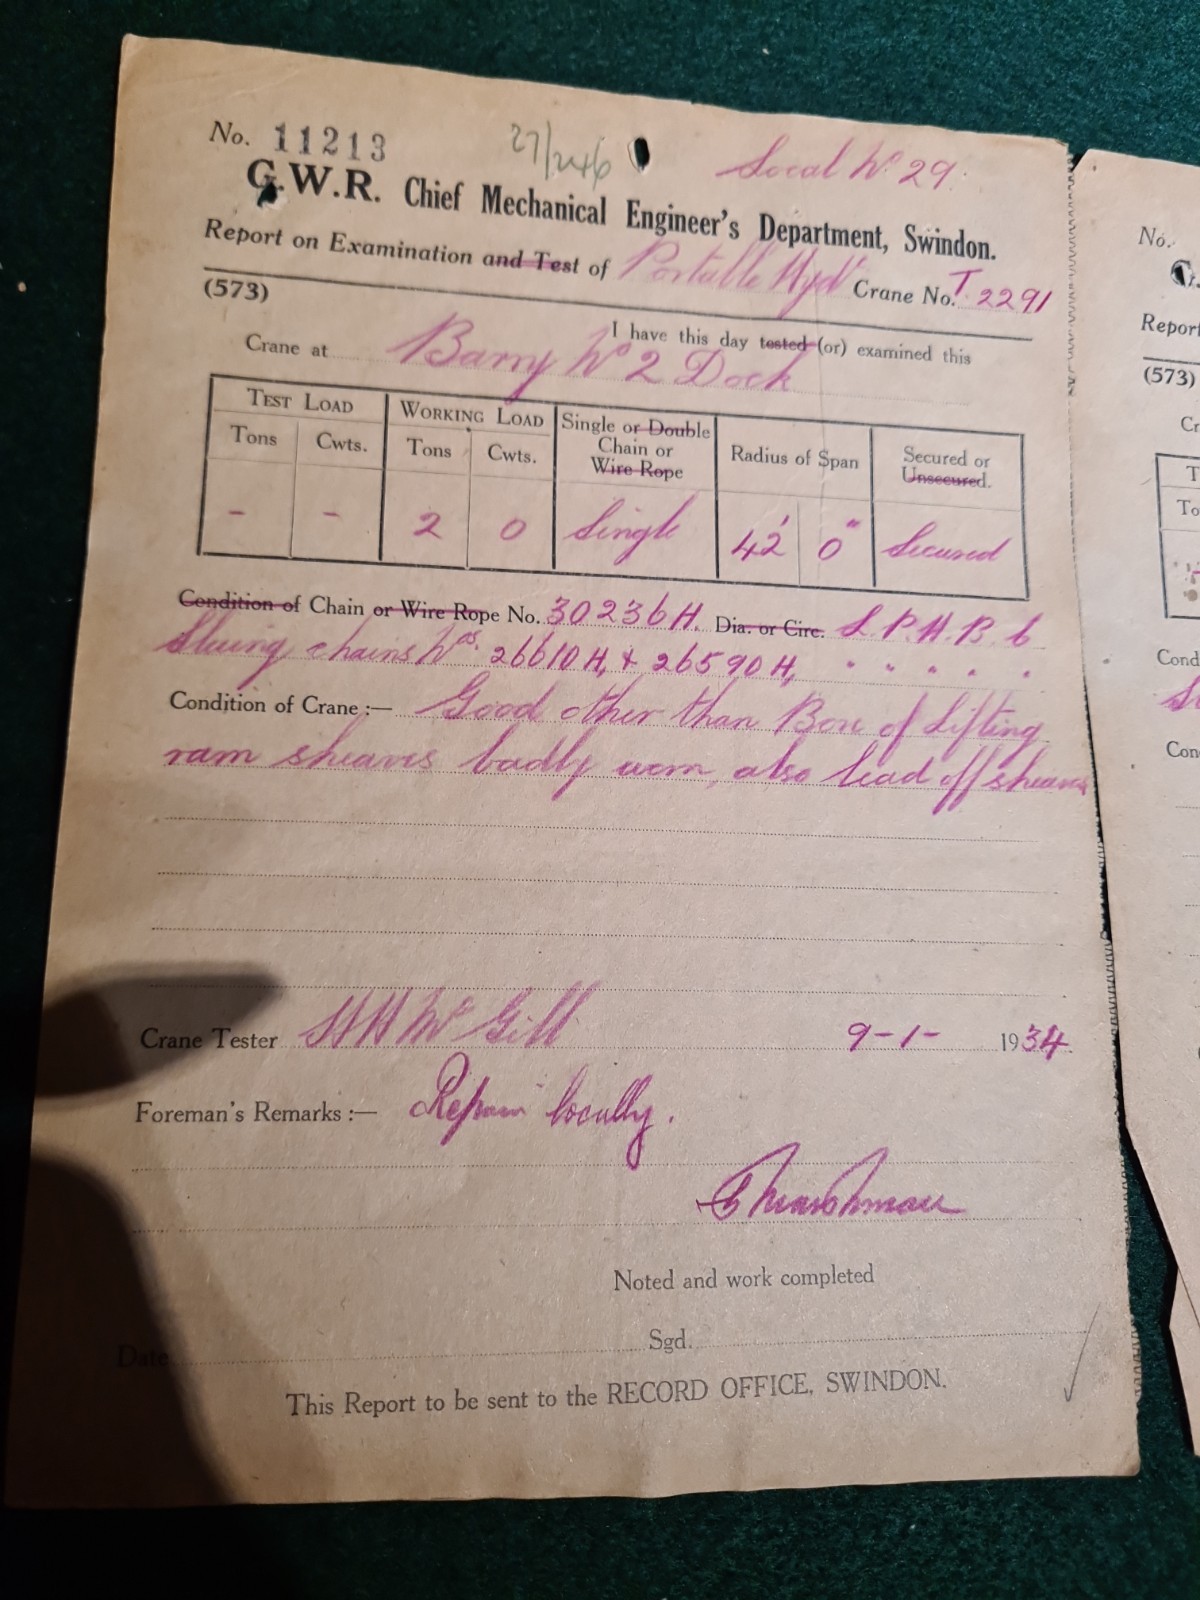 No. 11213 27/246 Local No 29.
G.W.R. Chief Mechanical Engineer's Department, Swindon.
Report on Examination and Test of Portable Hydc Crane No. T 2291
(573)
I have this day tested (or) examined this
Crane at Barry No 2 Dock
TEST LOAD WORKING LOAD Single or Double Chain or Wire Rope Radius of Span Secured or Unsecured.
Tons Cwts. Tons Cwts.
- - 2 0 Single 42' 0" Secured
Condition of Chain or Wire Rope No. 30236H. Dia. or Circ. L.P.H.B. 6
Sluing chains Nos. 26610H, & 26590H, " " " " "
Condition of Crane :— Good other than Bore of Lifting
ram sheaves badly worn, also lead off sheaves
Crane Tester H H Mc Gill 9-1- 1934.
Foreman's Remarks :— Repair locally.
Noted and work completed
Date Sgd.
This Report to be sent to the RECORD OFFICE, SWINDON.
No.
G.
Report
(573)
Cr
T
To
Cond
Sl
Con